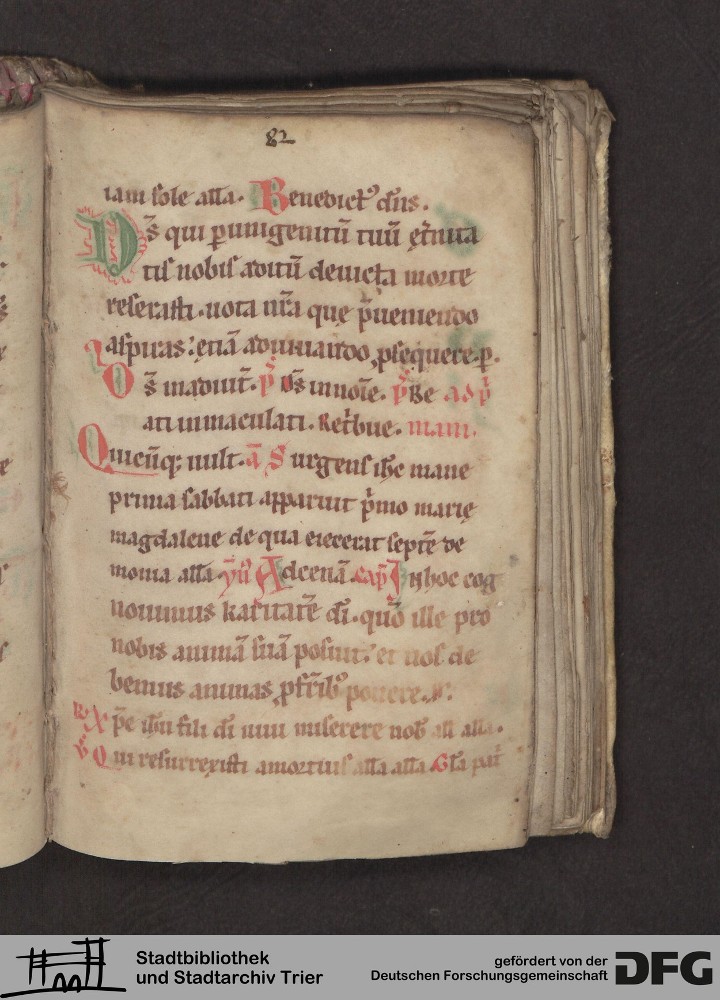 82
iam sole alla. Benedict⁹ dñs.
Ds̄ qui p̲ unigenitū tuū et̾nita
tis nobis aditū deuicta morte
reserasti. uota nr̄a que p̄ueniendo
aspiras. etiā adiuuando ꝓsequere. p̲.
Ds̄ in adiuit̄. p̄ Ds̄ in noīe. p̄s Be ad p̄
ati inmaculati. Ret̾bue.
Quicūq; uult. a᷃ Surgens ihc mane
prima sabbati apparuit p̾mo marię
magdalene de qua eiecerat septē de
monia alla ym̄ Ad cenā cap̄ In hoc cog
nouimus karitatē di᷃. quō ille pro
nobis animā suā posuit. et nos de
bemus animas ꝓ fr̄ib⁹ ponere.
R᷃ Xpe ihu fili di᷃ uiui miserere nob̄ all alla.
V᷃ Qui resurrexisti a mortuis alla alla Gl̄a pat̾
Stadtbibliothek
und Stadtarchiv Trier
gefördert von der
Deutschen Forschungsgemeinschaft
DFG